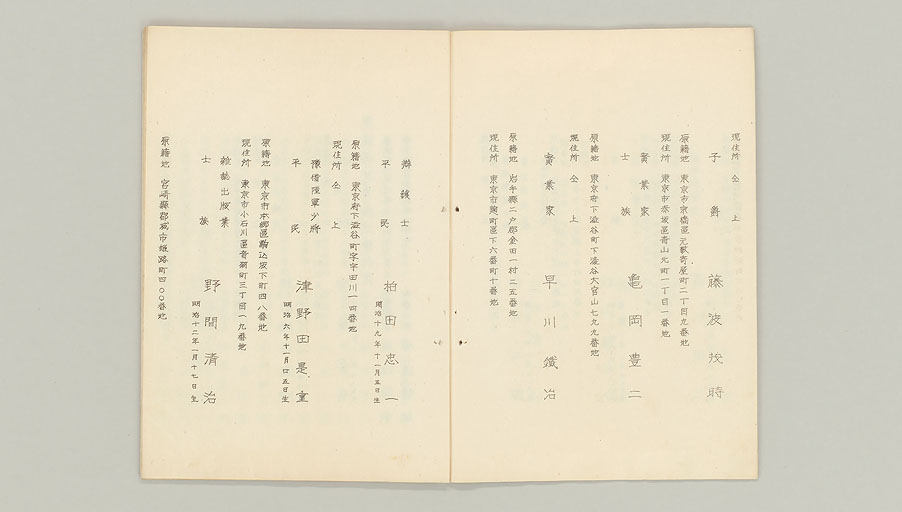 現住所 仝上
子爵 藤波 時
原籍地 東京市京橋區元數寄屋町二丁目九番地
現住所 東京市赤坂區青山元町一丁目一番地
實業家
士族 亀岡豊二
原籍地 東京府下澁谷町下澁谷大宮山七九九番地
現住所 仝上
實業家 早川鐵治
原籍地 岩手縣二戸郡金田一村二五番地
現住所 東京市麹町區下六番町十番地
辯護士
平民 柏田忠一
明治十九年十一月五日生
原籍地 東京府下澁谷町字宇田川一四番地
現住所 仝上
豫備陸軍少將
平民 津野田是重
明治六年十一月 五日生
原籍地 東京市本郷區駒込坂下町四八番地
現住所 東京市小石川區音羽町三丁目一九番地
雜誌出版業
士族 野間清治
明治十二年一月十七日生
原籍地 宮崎縣都城市姫路町四〇〇番地